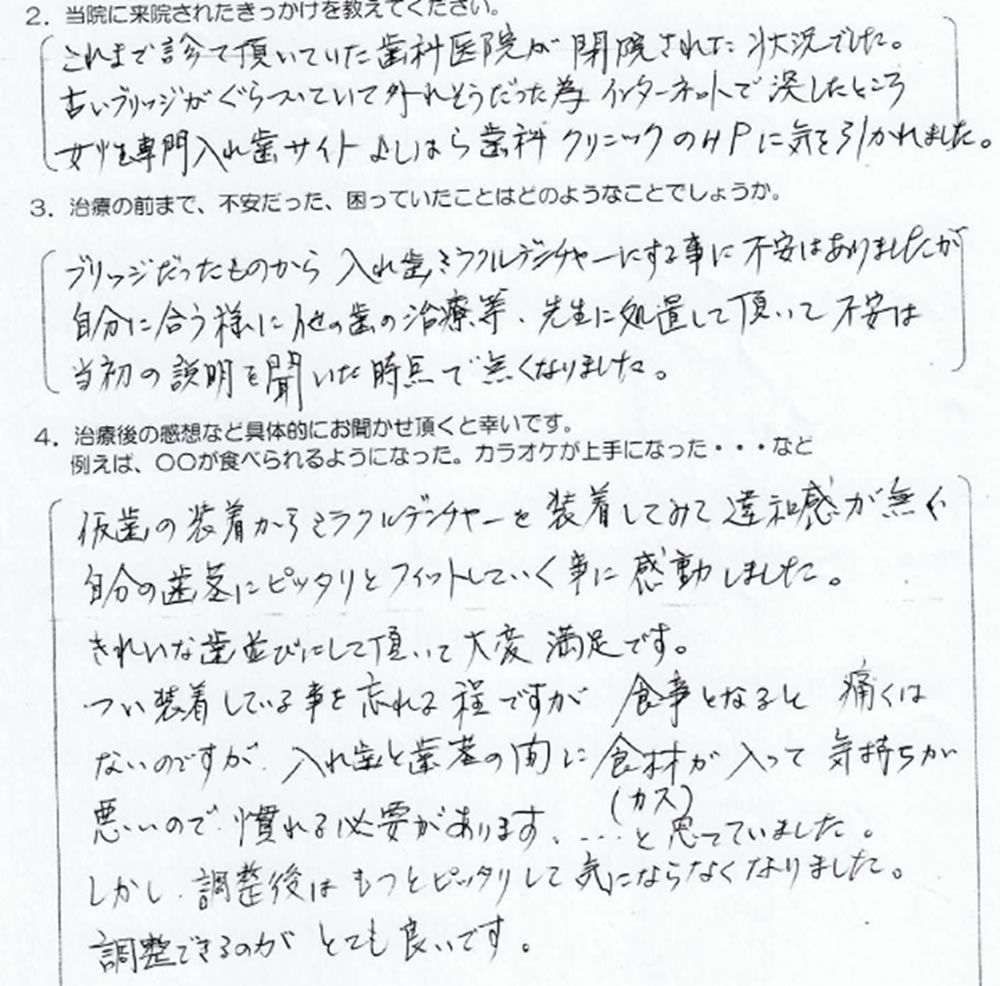 2. 当院に来院されたきっかけを教えてください。
これまで診て頂いていた歯科医院が閉院された状況でした。
古いブリッジがぐらついていて外れそうだった為インターネットで探したところ
女性専門入れ歯サイトよしはら歯科クリニックのHPに気を引かれました。
3. 治療の前まで、不安だった、困っていたことはどのようなことでしょうか。
ブリッジだったものから入れ歯ミラクルデンチャーにする事に不安はありましたが
自分に合う様に他の歯の治療等、先生に処置して頂いて不安は
当初の説明を聞いた時点で無くなりました。
4. 治療後の感想など具体的にお聞かせ頂くと幸いです。
例えば、〇〇が食べられるようになった。カラオケが上手になった・・・など
仮歯の装着からミラクルデンチャーを装着してみて違和感が無く
自分の歯茎にピッタリとフィットしていく事に感動しました。
きれいな歯並びにして頂いて大変満足です。
つい装着している事を忘れる程ですが食事となると痛くは
ないのですが、入れ歯と歯茎の間に食材が入って気持ちが
(カス)
悪いので、慣れる必要があります、…と思っていました。
しかし、調整後はもっとピッタリして気にならなくなりました。
調整できるのがとても良いです。